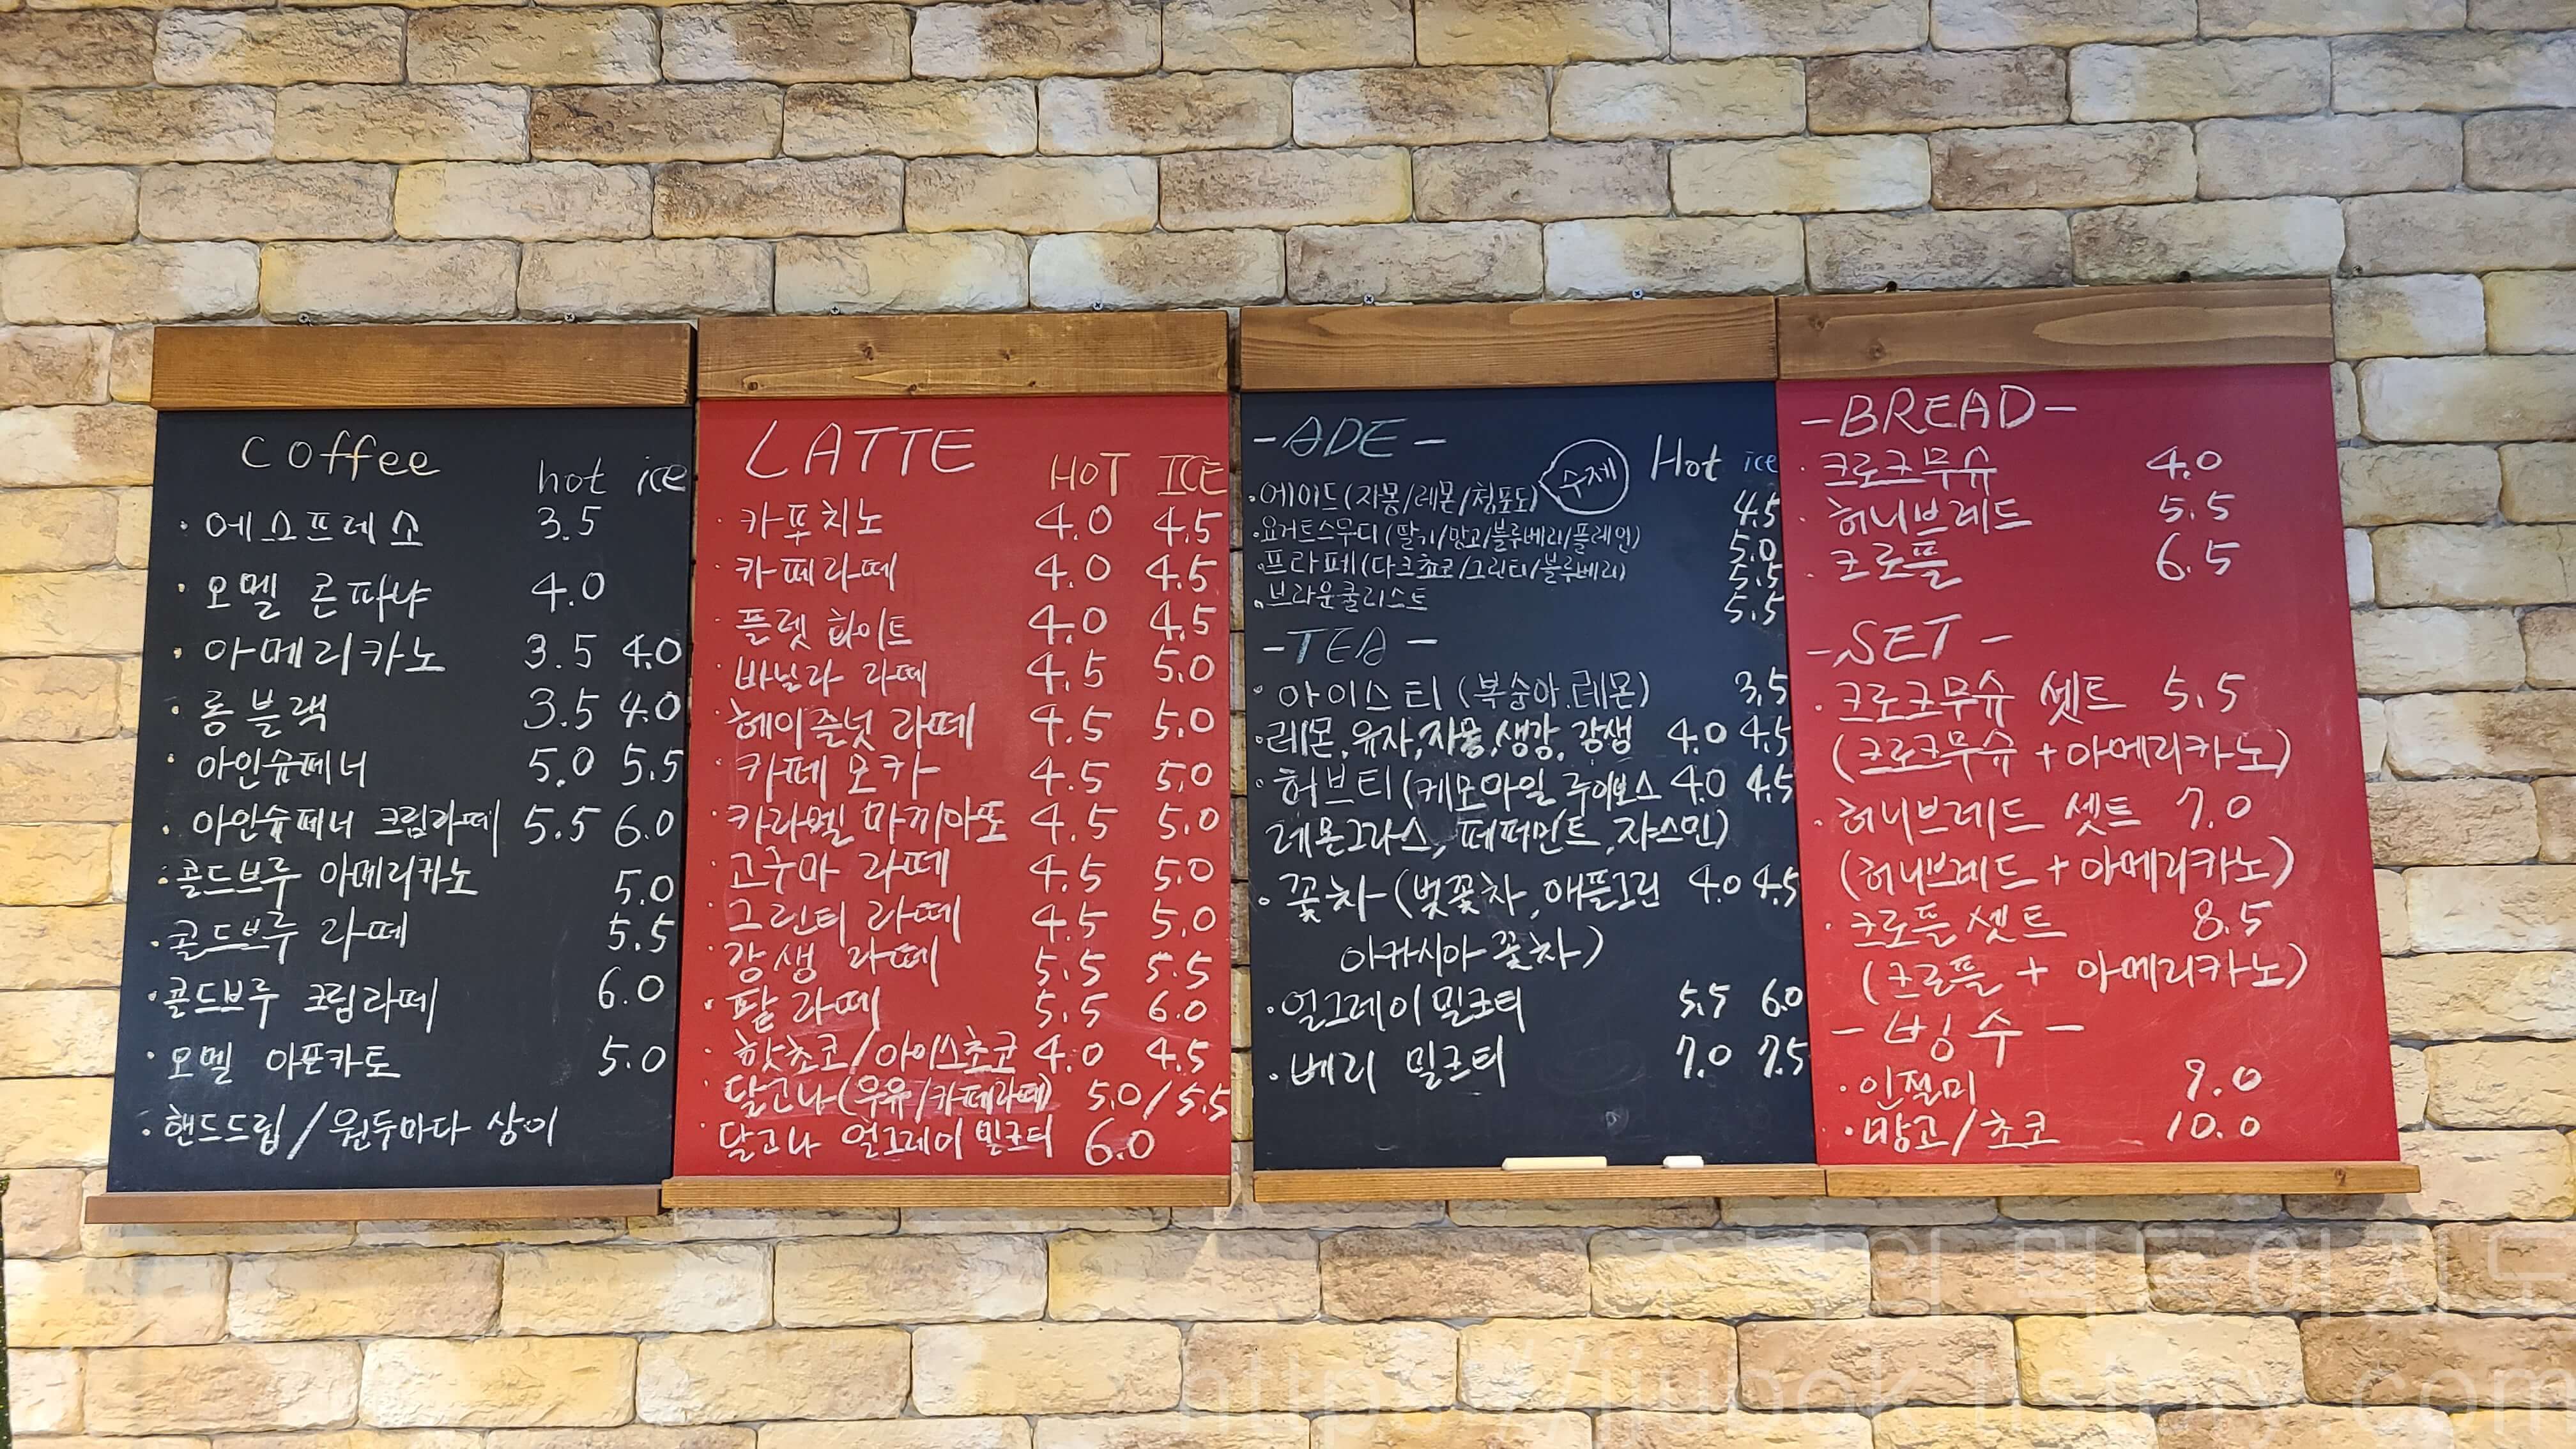 Coffee
hot ice
· 에스프레소 3.5
· 오멜 콘파냐 4.0
· 아메리카노 3.5 4.0
· 롱블랙 3.5 4.0
· 아인슈페너 5.0 5.5
· 아인슈페너 크림라떼 5.5 6.0
· 콜드브루 아메리카노 5.0
· 콜드브루 라떼 5.5
· 콜드브루 크림라떼 6.0
· 오멜 아포카토 5.0
· 핸드드립/원두마다 상이
LATTE
HOT ICE
· 카푸치노 4.0 4.5
· 카페라떼 4.0 4.5
· 플렛 화이트 4.0 4.5
· 바닐라 라떼 4.5 5.0
· 헤이즐넛 라떼 4.5 5.0
· 카페모카 4.5 5.0
· 카라멜 마끼아또 4.5 5.0
· 고구마 라떼 4.5 5.0
· 그린티 라떼 4.5 5.0
· 강생 라떼 5.5 5.5
· 팥 라떼 5.5 6.0
· 핫초코/아이스초코 4.0 4.5
· 달고나(우유/카페라떼) 5.0/5.5
· 달고나 얼그레이 밀크티 6.0
-ADE-
수제 Hot ice
· 에이드(자몽/레몬/청포도) 4.5
· 요거트스무디(딸기/망고/블루베리/플레인) 5.0
· 프라페(다크쵸코/그린티/블루베리) 5.5
· 브라운쿨리스트 5.5
-TEA-
· 아이스티(복숭아.레몬) 3.5
· 레몬,유자,자몽,생강,강생 4.0 4.5
· 허브티(케모마일 루이보스 4.0 4.5
레몬그라스, 페퍼민트,쟈스민)
· 꽃차(벚꽃차,애플그린 4.0 4.5
아카시아꽃차)
· 얼그레이밀크티 5.5 6.0
· 베리 밀크티 7.0 7.5
-BREAD-
· 크로크무슈 4.0
· 허니브레드 5.5
· 크로플 6.5
-SET-
· 크로크무슈 셋트 5.5
(크로크무슈+아메리카노)
· 허니브레드 셋트 7.0
(허니브레드+아메리카노)
· 크로플 셋트 8.5
(크로플 + 아메리카노)
- 빙수 -
· 인절미 9.0
· 망고/초코 10.0